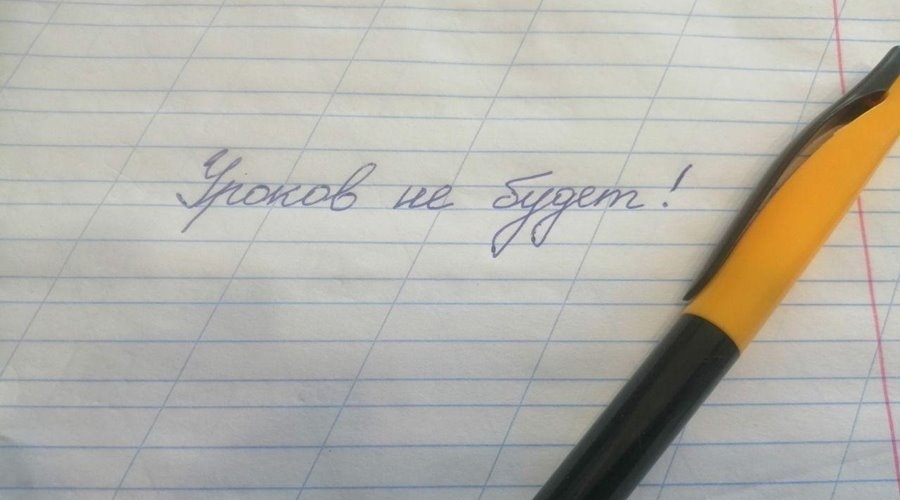 Уроков не будет!